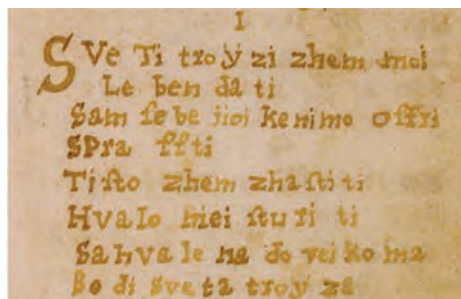 I
SVe Ti troÿ zi zhem moi
Le ben da ti
Sam ſe be iioi ke nimo offri
SPra ffti
Ti ſto zhem zhaſti ti
Hvalo niei ſtu ri ti
Sahvale na do vei ko ma
Bo di sveta troÿ za